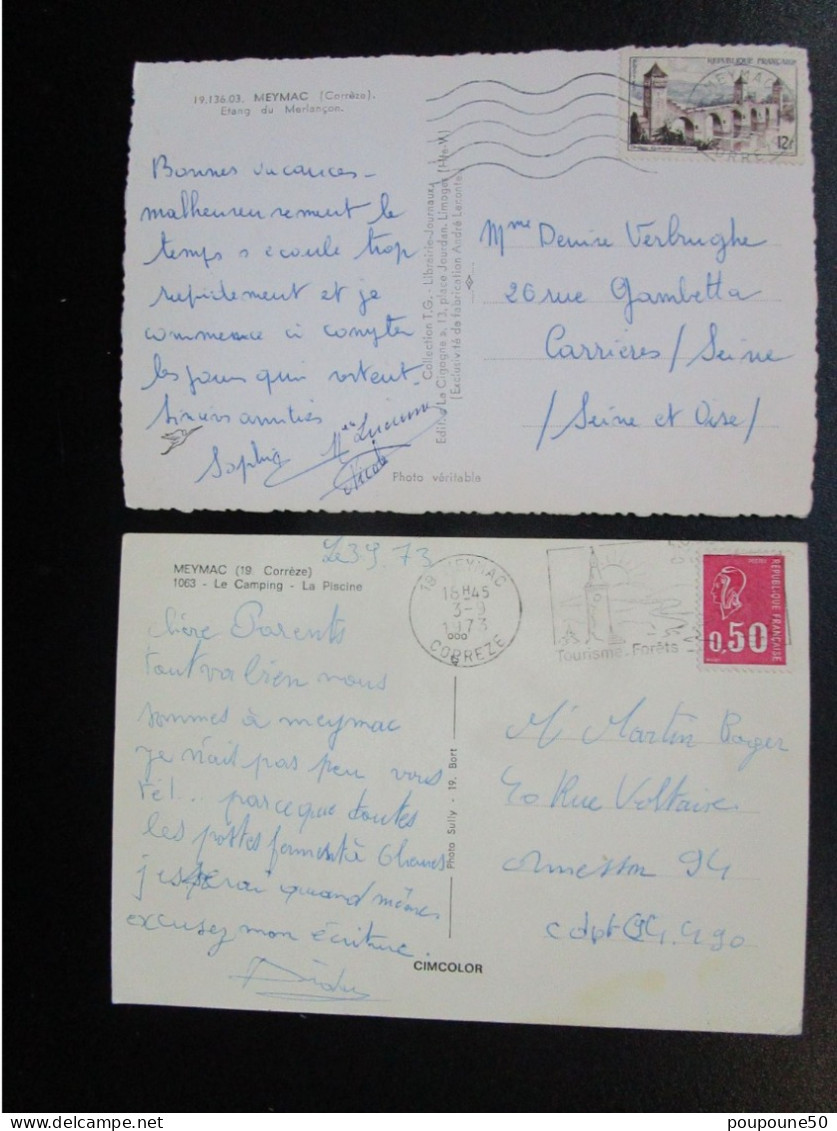 19.136.03. MEYMAC (Corrèze).
Etang du Merlançon.
Bonnes vacances -
malheureusement le
temps s'écoule trop
rapidement et je
commence à compter
les jours qui restent.
Sincères amitiés
Sophie
Lucienne
Nicole
Photo véritable
Collection T.G. - Librairie-Journaux
Edit. « La Cigogne », 13, place Jourdan, Limoges (Hte-V.)
(Exclusivité de fabrication André Leconte)
REPUBLIQUE FRANÇAISE
12f
MEYMAC
CORREZE
Mme Denise Verbrughe
26 rue Gambetta
Carrières / Seine
/ Seine et Oise /
MEYMAC (19 Corrèze)
1063 - Le Camping - La Piscine
Le 3.9.73
chère Parents
tout va bien nous
sommes à meymac
je n'ait pas peu vous
tél... parceque toutes
les postes ferment à 6 heures
j'espérai quand mêmes
excusez mon écriture.
Photo Sully - 19. Bort
CIMCOLOR
19 MEYMAC
18H45
3-9
1973
CORREZE
Tourisme. Forêts
REPUBLIQUE FRANÇAISE
0,50
Mr Martin Roger
40 Rue Voltaire
ormesson 94
cdpt 94.490
poupoune50